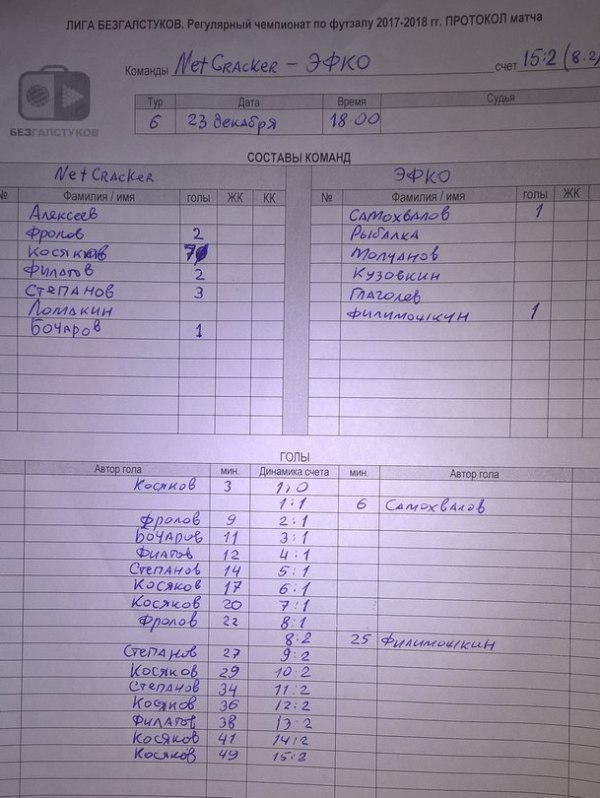 ЛИГА БЕЗГАЛСТУКОВ. Регулярный чемпионат по футзалу 2017-2018 гг. ПРОТОКОЛ матча
Команды NetCracker - ЭФКО счет 15:2 (8:2)
БЕЗГАЛСТУКОВ
Тур Дата Время Судья
6 23 декабря 18:00
СОСТАВЫ КОМАНД
NetCracker ЭФКО
№ Фамилия / имя голы ЖК КК № Фамилия / имя голы ЖК
Алексеев Самохвалов 1
Фролов 2 Рыбалка
Косяков 7 Молчанов
Филатов 2 Кузовкин
Степанов 3 Глаголев
Ломакин Филимошкин 1
Бочаров 1
ГОЛЫ
Автор гола мин. Динамика счета мин. Автор гола
Косяков 3 1:0
1:1 6 Самохвалов
Фролов 9 2:1
Бочаров 11 3:1
Филатов 12 4:1
Степанов 14 5:1
Косяков 17 6:1
Косяков 20 7:1
Фролов 22 8:1
8:2 25 Филимошкин
Степанов 27 9:2
Косяков 29 10:2
Степанов 34 11:2
Косяков 36 12:2
Филатов 38 13:2
Косяков 41 14:2
Косяков 49 15:2